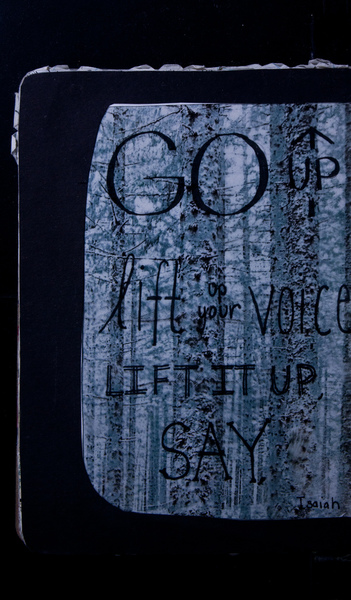 GO UP
lift up your voice
LIFT IT UP,
SAY.
Isaiah